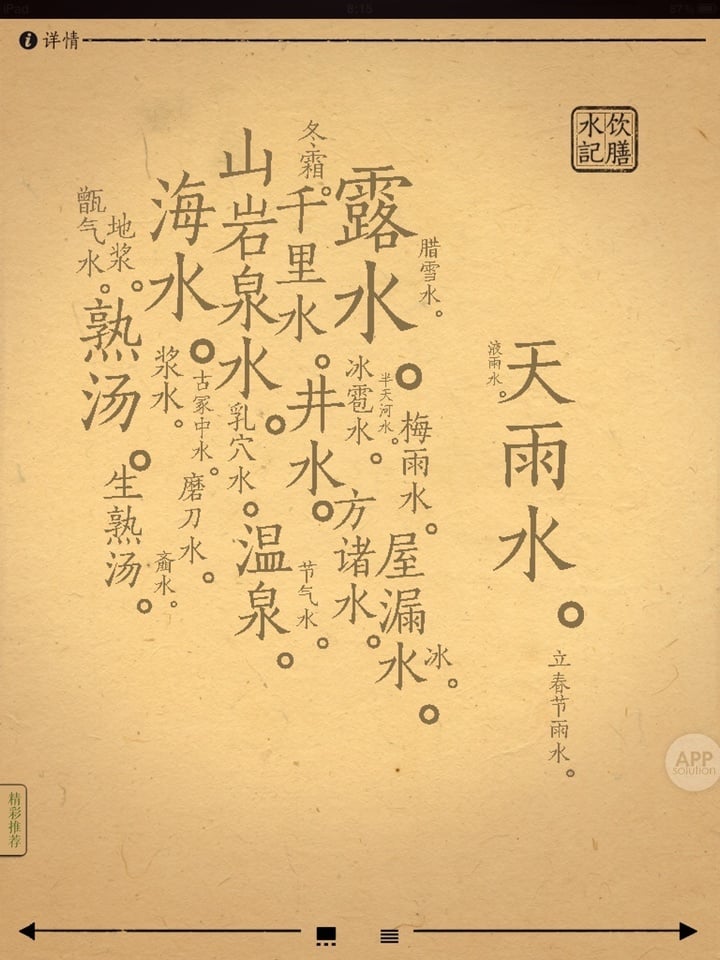 iPad
8:15
67%
详情
饮膳
水記
天雨水。
液雨水。
立春节雨水。
腊雪水。
露水。
半天河水。
梅雨水。
屋漏水。
冰。
冬霜。
千里水。
冰雹水。
井水。
方诸水。
节气水。
山岩泉水。
乳穴水。
温泉。
海水。
古冢中水。
浆水。
磨刀水。
齑水。
地浆。
甑气水。
熟汤。
生熟汤。
精彩推荐
APP
solution